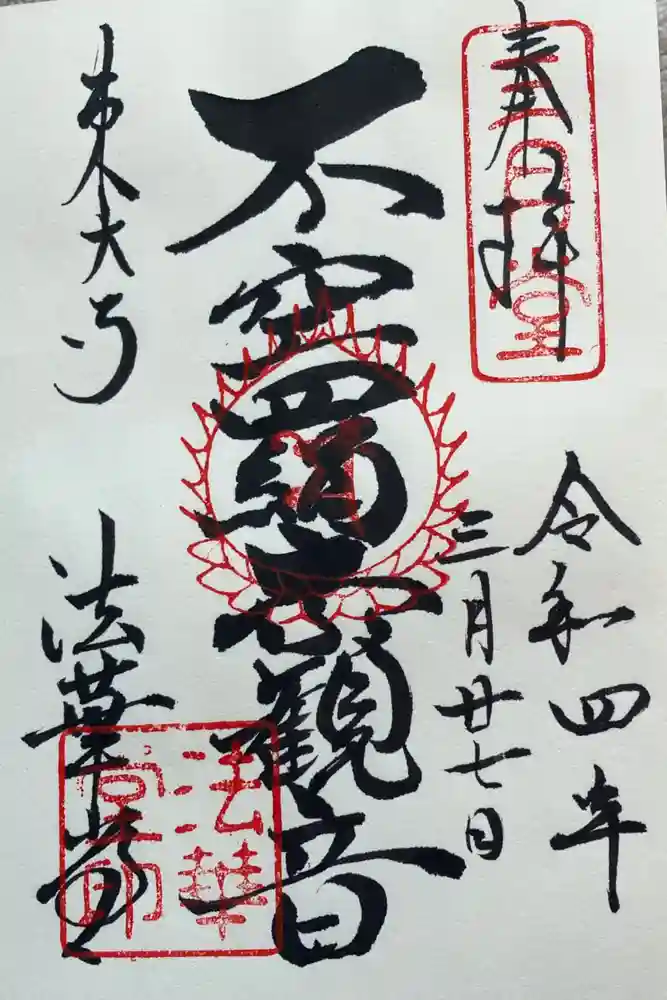 奉拝
三月堂
令和四年
三月廿七日
不空羂索観音
東大寺
法華堂
法華堂印